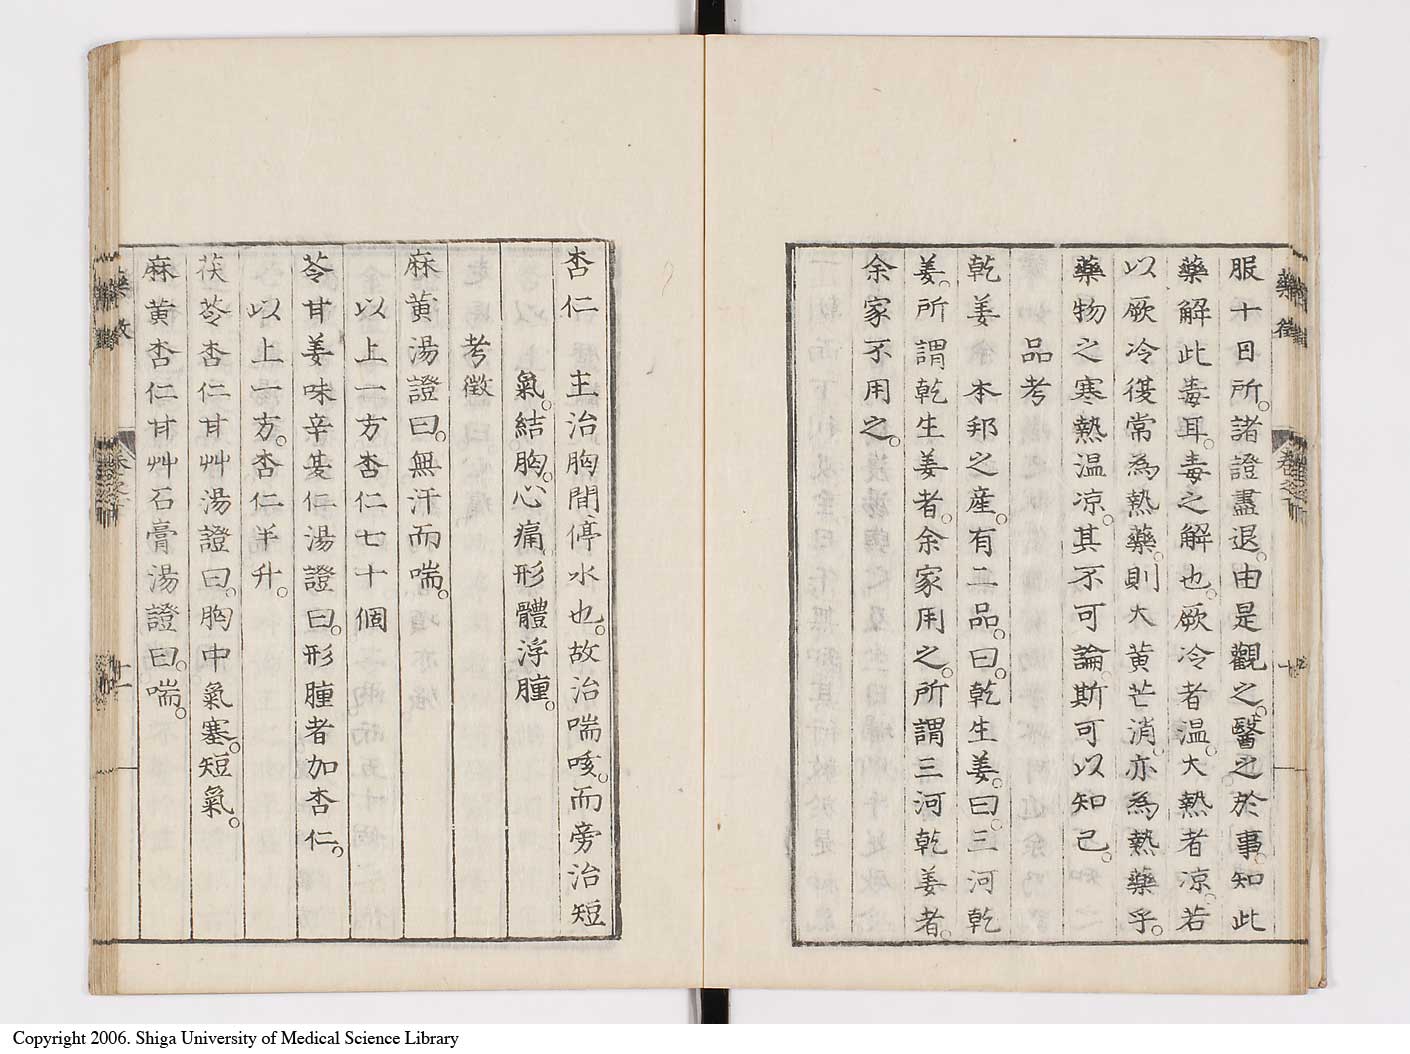 服十日所。諸證盡退。由是觀之。醫之於事。知此
藥解此毒耳。毒之解也。厥冷者温。大熱者凉。若
以厥冷復常為熱藥。則大黄芒消。亦為熱藥乎。
藥物之寒熱温凉。其不可論。斯可以知已。
品考
乾姜 本邦之産。有二品。曰。乾生姜。曰。三河乾
姜。所謂乾生姜者。余家用之。所謂三河乾姜者。
余家不用之。
杏仁 主治胸間停水也。故治喘咳。而旁治短
氣。結胸。心痛。形體浮腫。
考徴
麻黄湯證曰。無汗而喘。
以上一方杏仁七十個
苓甘姜味辛夏仁湯證曰。形腫者加杏仁。
以上一方。杏仁半升。
茯苓杏仁甘艸湯證曰。胸中氣塞。短氣。
麻黄杏仁甘艸石膏湯證曰。喘。
Copyright 2006. Shiga University of Medical Science Library